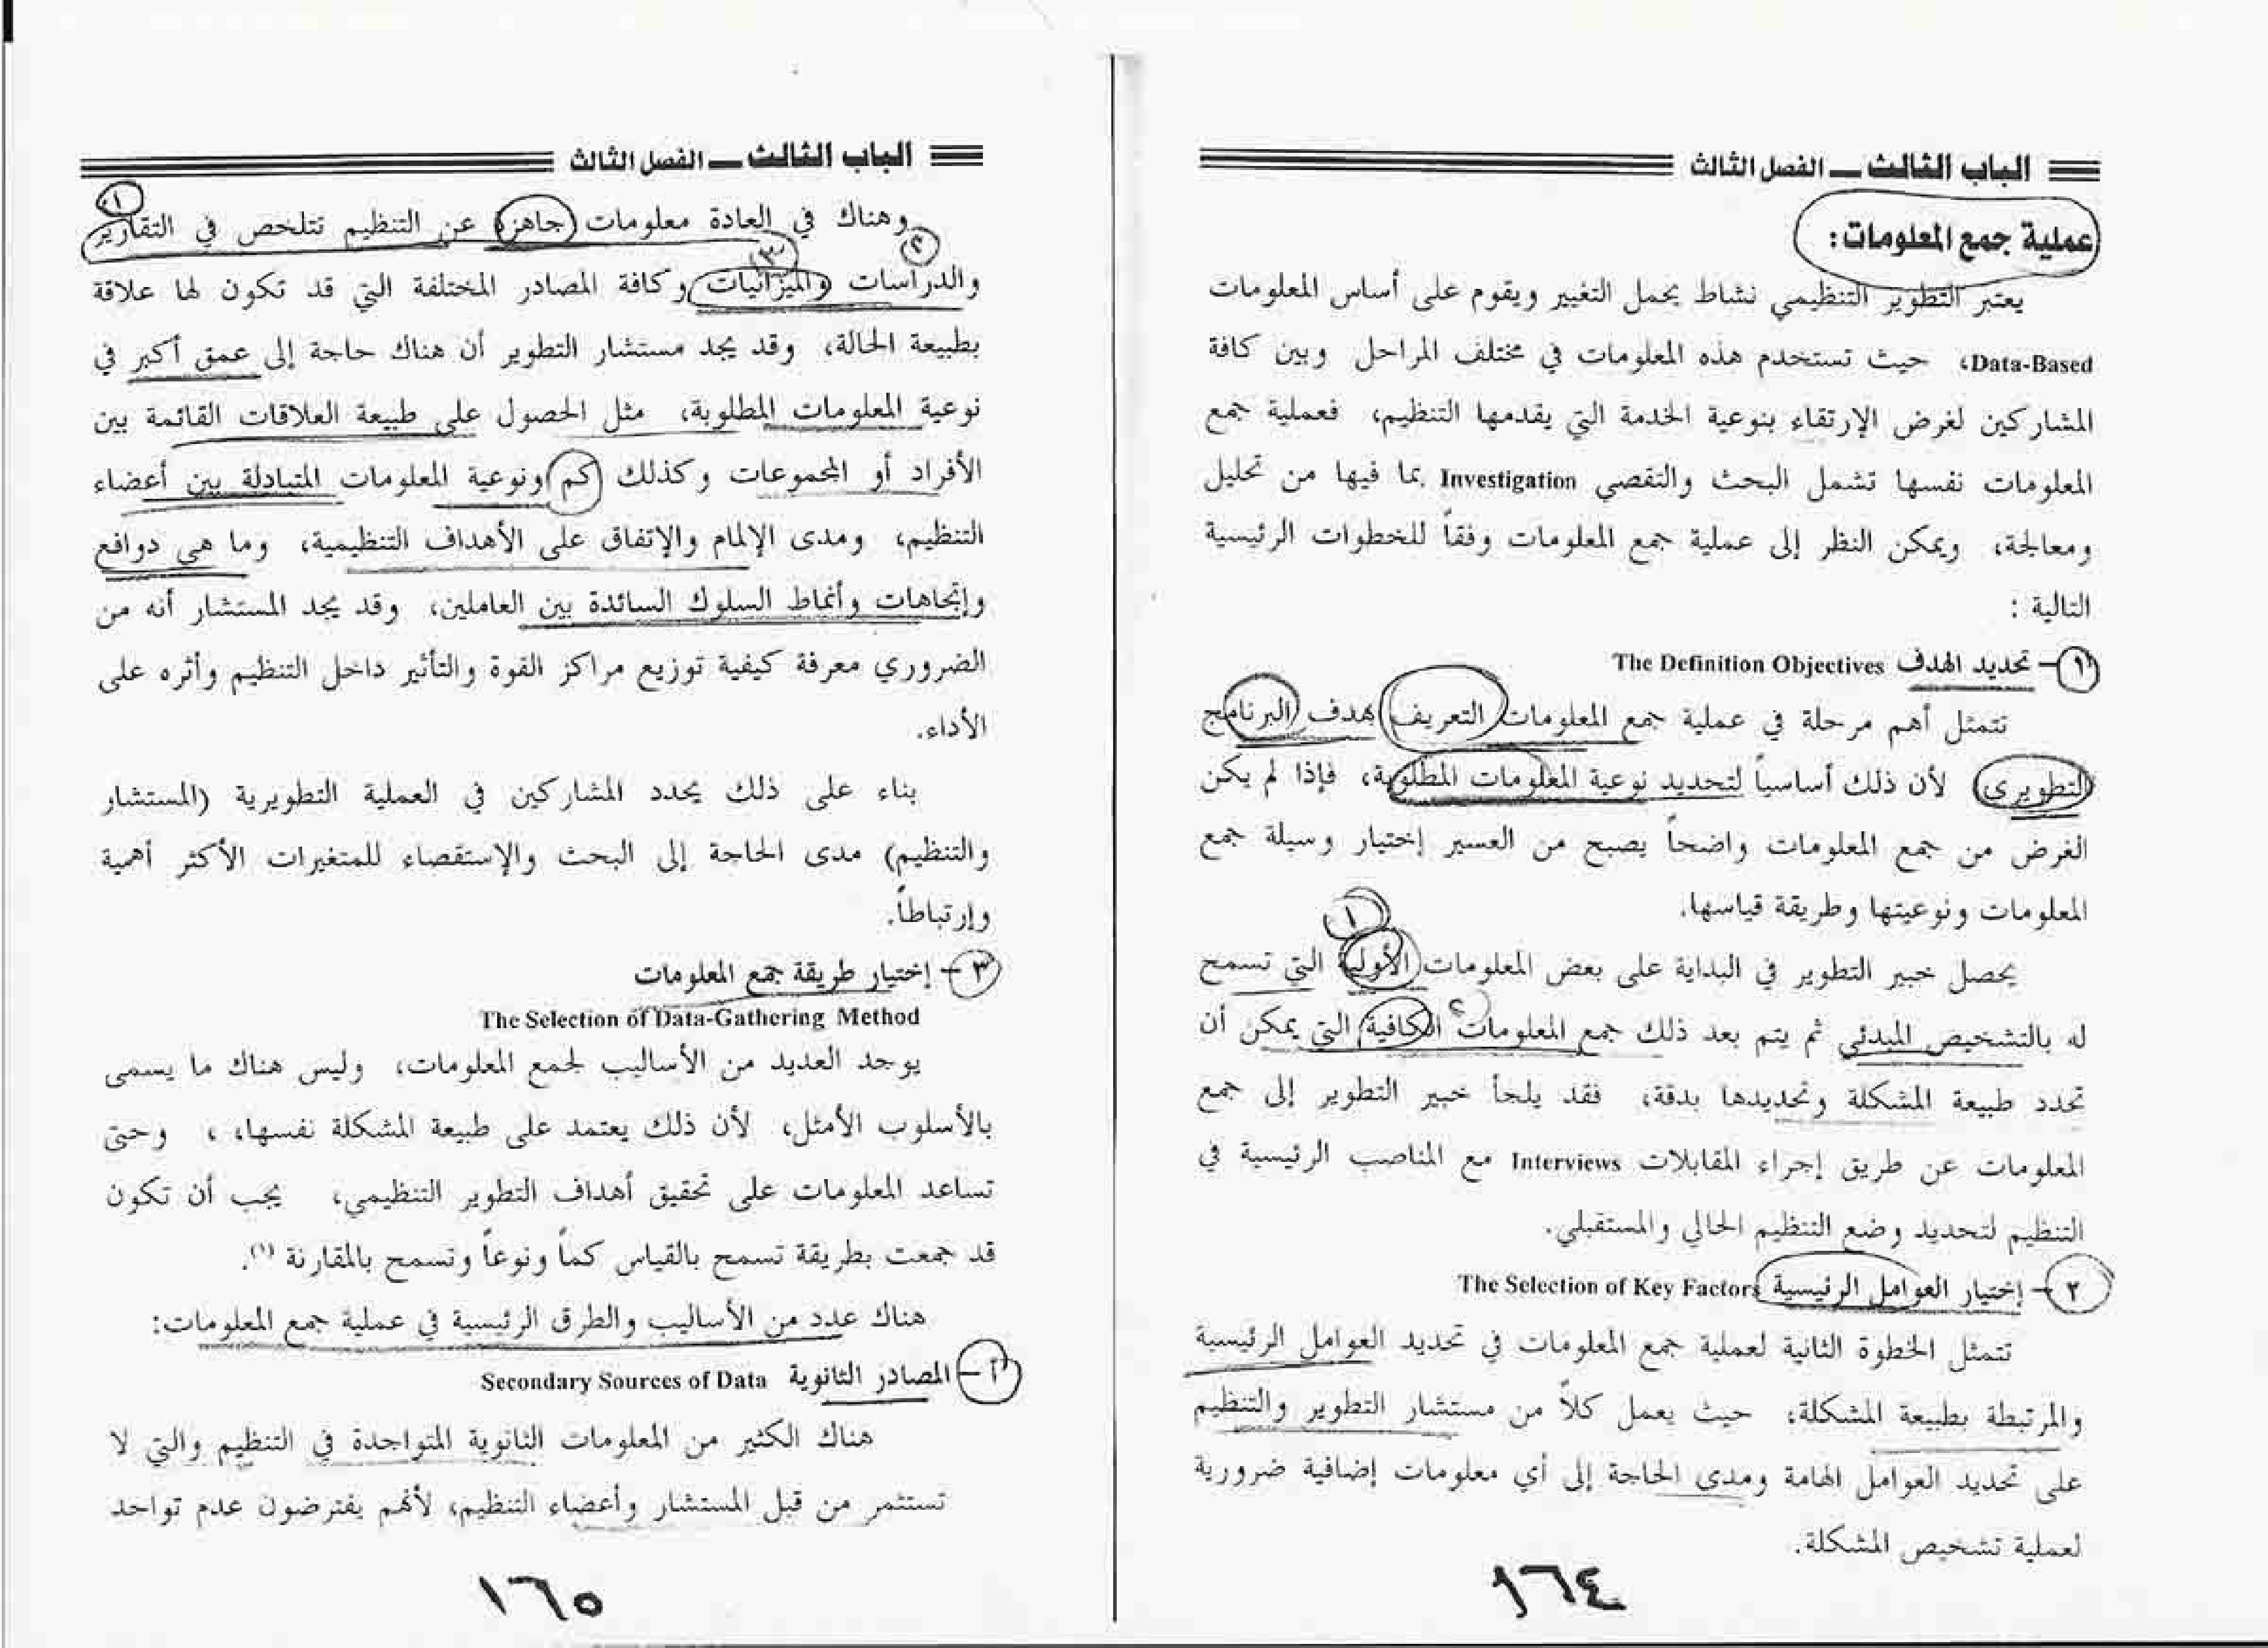 الباب الثالث ــ الفصل الثالث
عملية جمع المعلومات:
يعتبر التطوير التنظيمي نشاط يحمل التغيير ويقوم على أساس المعلومات
Data-Based، حيث تستخدم هذه المعلومات في مختلف المراحل وبين كافة
المشاركين لغرض الإرتقاء بنوعية الخدمة التي يقدمها التنظيم، فعملية جمع
المعلومات نفسها تشمل البحث والتقصي Investigation بما فيها من تحليل
ومعالجة، ويمكن النظر إلى عملية جمع المعلومات وفقاً للخطوات الرئيسية
التالية :
١– تحديد الهدف The Definition Objectives
تتمثل أهم مرحلة في عملية جمع المعلومات التعريف بهدف البرنامج
التطويرى لأن ذلك أساسياً لتحديد نوعية المعلومات المطلوبة، فإذا لم يكن
الغرض من جمع المعلومات واضحاً يصبح من العسير إختيار وسيلة جمع
المعلومات ونوعيتها وطريقة قياسها.
١
يحصل خبير التطوير في البداية على بعض المعلومات الأولية التي تسمح
٢
له بالتشخيص المبدئي ثم يتم بعد ذلك جمع المعلومات الكافية التي يمكن أن
تحدد طبيعة المشكلة وتحديدها بدقة، فقد يلجأ خبير التطوير إلى جمع
المعلومات عن طريق إجراء المقابلات Interviews مع المناصب الرئيسية في
التنظيم لتحديد وضع التنظيم الحالي والمستقبلي.
٢– إختيار العوامل الرئيسية The Selection of Key Factors
تتمثل الخطوة الثانية لعملية جمع المعلومات في تحديد العوامل الرئيسية
والمرتبطة بطبيعة المشكلة، حيث يعمل كلاً من مستشار التطوير والتنظيم
على تحديد العوامل الهامة ومدى الحاجة إلى أي معلومات إضافية ضرورية
لعملية تشخيص المشكلة.
١٦٤
الباب الثالث ــ الفصل الثالث
١
وهناك في العادة معلومات جاهزة عن التنظيم تتلخص في التقارير
٢
٣
والدراسات والميزانيات وكافة المصادر المختلفة التي قد تكون لها علاقة
بطبيعة الحالة، وقد يجد مستشار التطوير أن هناك حاجة إلى عمق أكبر في
نوعية المعلومات المطلوبة، مثل الحصول على طبيعة العلاقات القائمة بين
الأفراد أو المجموعات وكذلك كم ونوعية المعلومات المتبادلة بين أعضاء
التنظيم، ومدى الإلمام والإتفاق على الأهداف التنظيمية، وما هي دوافع
وإتجاهات وأنماط السلوك السائدة بين العاملين، وقد يجد المستشار أنه من
الضروري معرفة كيفية توزيع مراكز القوة والتأثير داخل التنظيم وأثره على
الأداء.
بناء على ذلك يحدد المشاركين في العملية التطويرية (المستشار
والتنظيم) مدى الحاجة إلى البحث والإستقصاء للمتغيرات الأكثر أهمية
وإرتباطاً.
٣– إختيار طريقة جمع المعلومات
The Selection of Data-Gathering Method
يوجد العديد من الأساليب لجمع المعلومات، وليس هناك ما يسمى
بالأسلوب الأمثل، لأن ذلك يعتمد على طبيعة المشكلة نفسها، ، وحتى
تساعد المعلومات على تحقيق أهداف التطوير التنظيمي، يجب أن تكون
قد جمعت بطريقة تسمح بالقياس كماً ونوعاً وتسمح بالمقارنة (١).
هناك عدد من الأساليب والطرق الرئيسية في عملية جمع المعلومات:
أ– المصادر الثانوية Secondary Sources of Data
هناك الكثير من المعلومات الثانوية المتواجدة في التنظيم والتي لا
تستثمر من قبل المستشار وأعضاء التنظيم، لأنهم يفترضون عدم تواجد
١٦٥